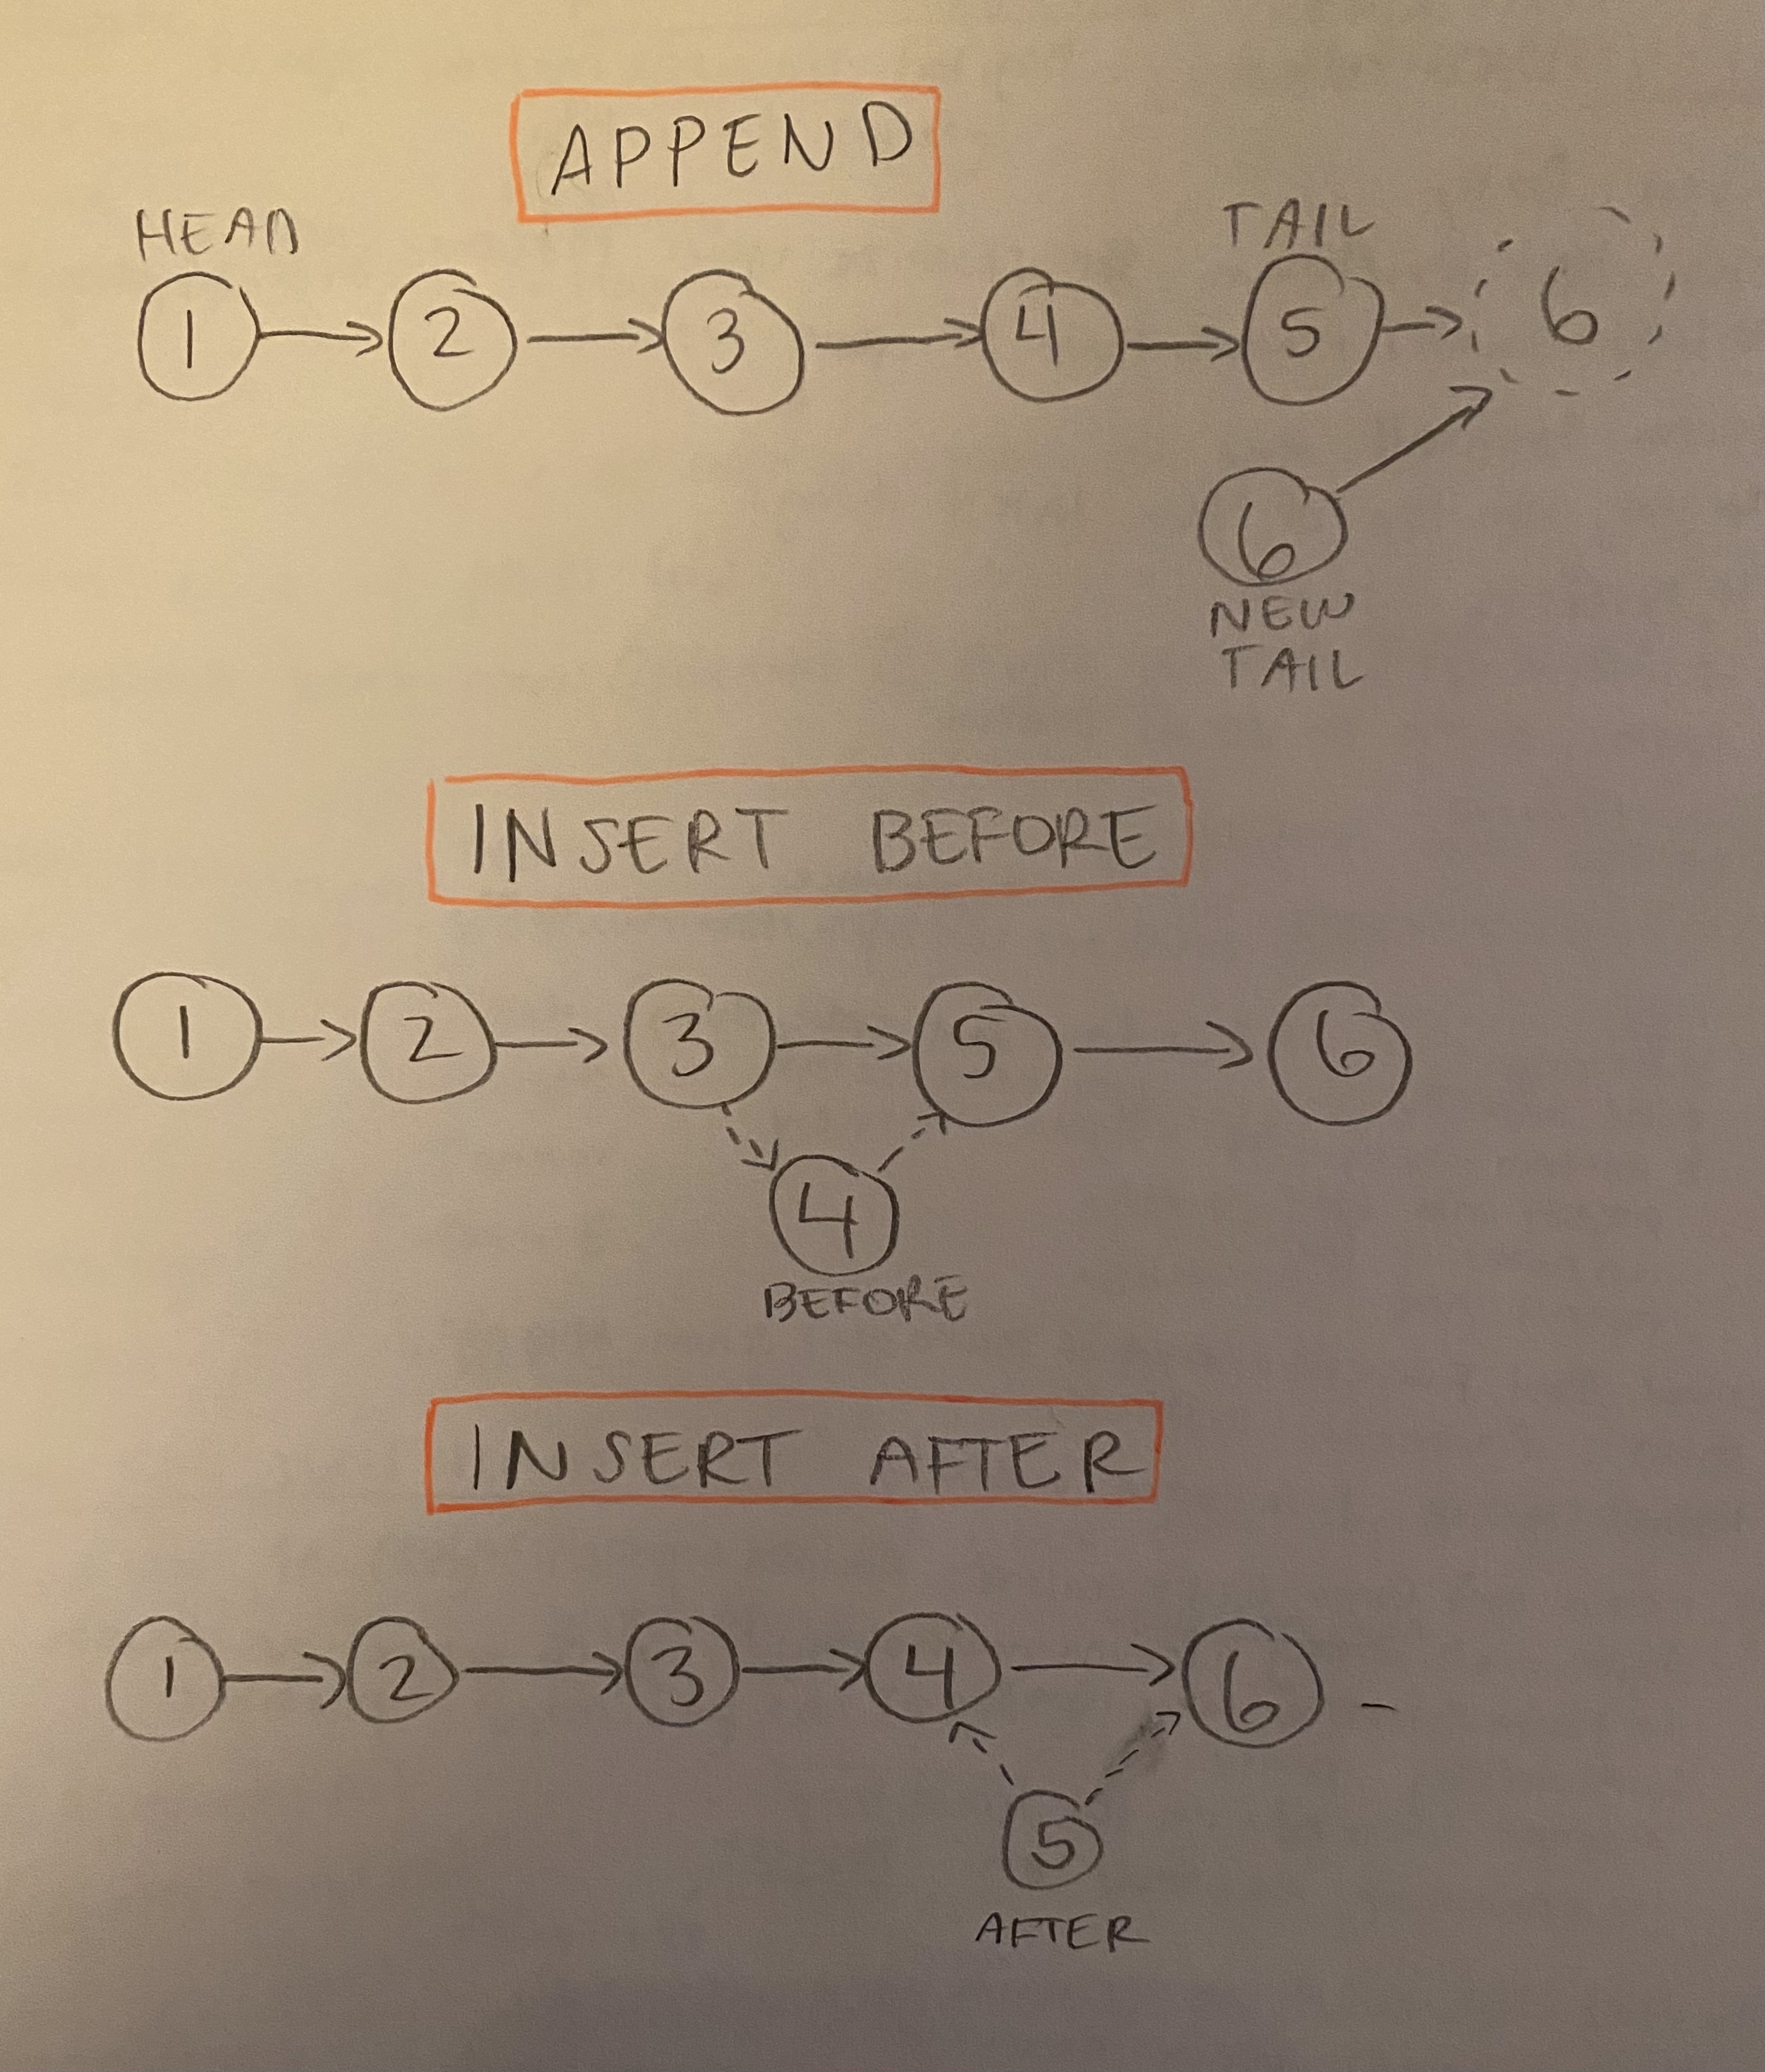 APPEND
HEAD
TAIL
1 2 3 4 5 6
6
NEW
TAIL
INSERT BEFORE
1 2 3 5 6
4
BEFORE
INSERT AFTER
1 2 3 4 6
5
AFTER